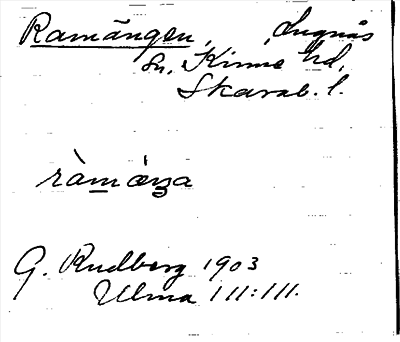 Ramängen, Lugnås
sn, Kinne hd,
Skarab. l.
ràmæŋa
G. Rudberg 1903
Ulma 111:111.